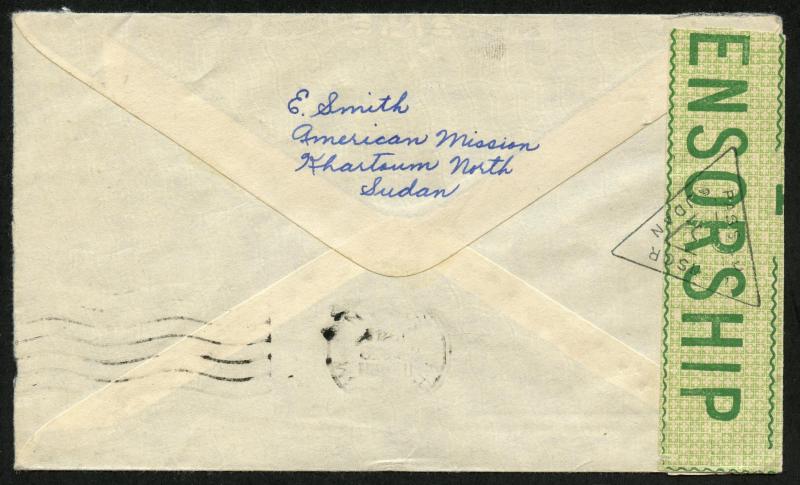 E. Smith
American Mission
Khartoum North
Sudan
ENSORSHIP
SUDAN